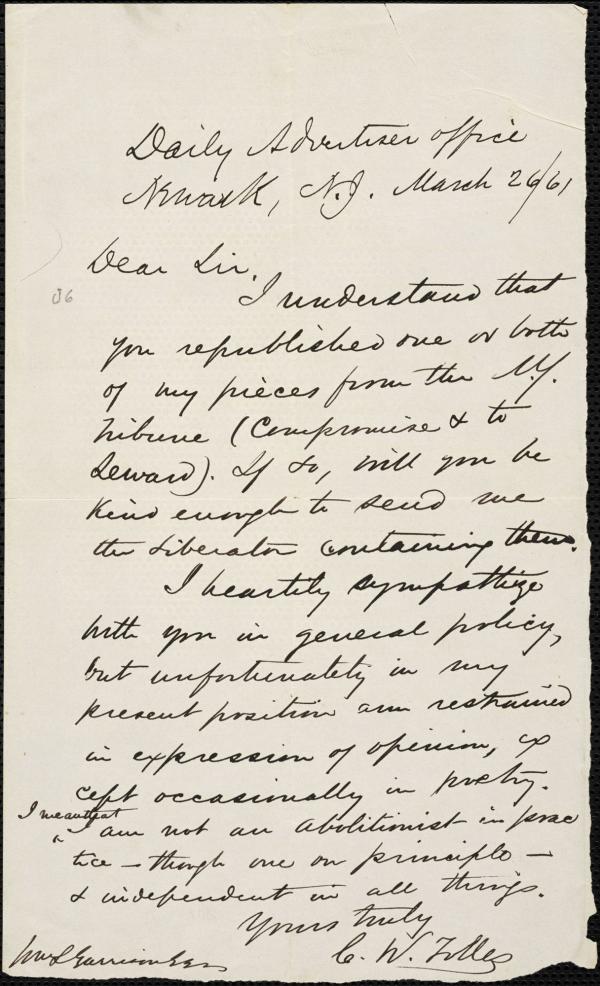 Daily Advertiser office
Newark, N.J. March 26/61
Dear Sir.
I understand that
you republished one or both
of my pieces from the N.Y.
Tribune (Compromise & to
Seward). If so, will you be
kind enough to send me
the Liberator containing them.
I heartily sympathize
with you in general policy,
but unfortunately in my
present position am restrained
in expression of opinion, ex
cept occasionally in poetry.
I mean that
^ I am not an abolitionist in prac
tice — though one on principle —
& independent in all things.
Yours truly
C. W. Tolles
Wm L Garrison Esq